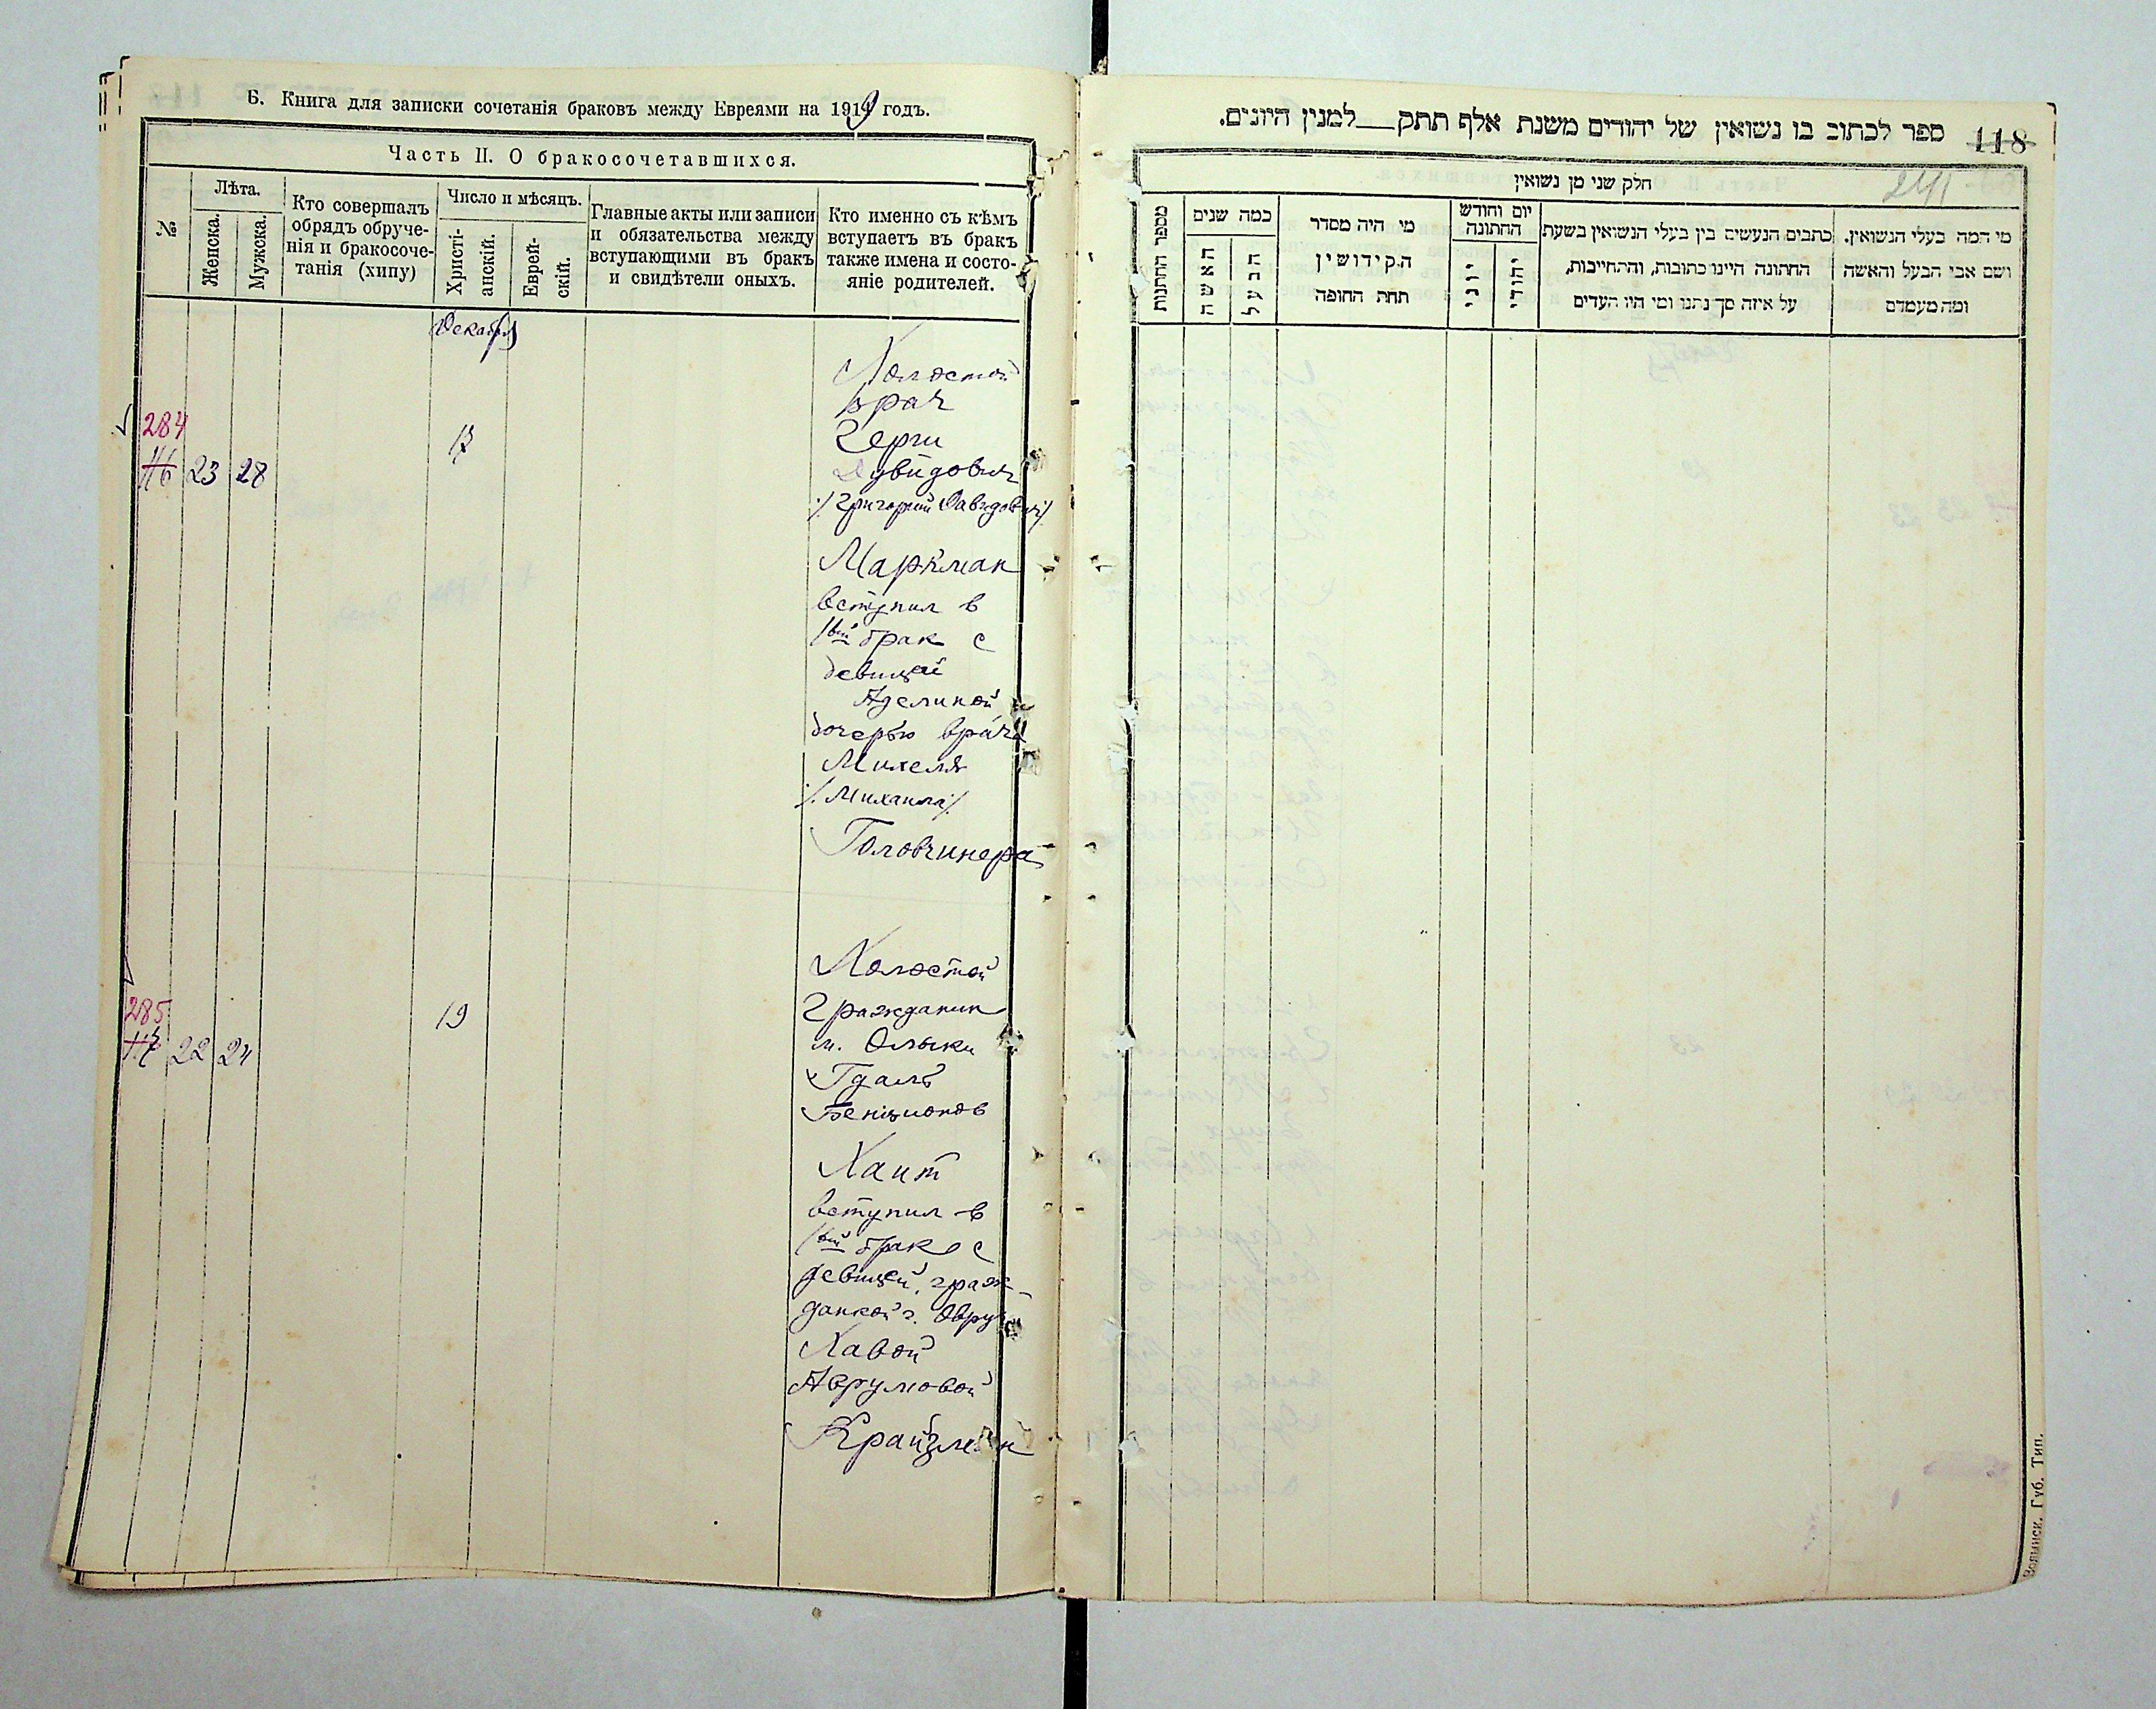 Б. Книга для записки сочетанія браковъ между Евреями на 1919 годъ.
Часть II. О бракосочетавшихся.
№
Лѣта.
Женска.
Мужска.
Кто совершалъ
обрядъ обруче-
нія и бракосоче-
танія (хипу)
Число и мѣсяцъ.
Христі-
анскій.
Еврей-
скій.
Главные акты или записи
и обязательства между
вступающими въ бракъ
и свидѣтели оныхъ.
Кто именно съ кѣмъ
вступаетъ въ бракъ
также имена и состо-
яніе родителей.
Декабрь
284
116 23 28
17
Холостой
врач
Герш
Дувидович
/Григорий Давидович/
Маркман
вступил в
1вый брак с
девицей
Аделиной
дочерью врача
Михеля
/Михаила/
Головчинера
285
117 22 24
19
Холостой
Гражданин
м. Олыки
Гдаль
Бенционов
Хаит
вступил в
1вый брак с
девицей, граж-
данкой г. Овруч
Хавой
Аврумовой
Крайзман
ספר לכתוב בו נשואין של יהודים משנת אלף תתק__למנין היונים.
118
241
חלק שני מן נשואין
מספר החתנות
כמה שנים
האשה
הבעל
מי היה מסדר
הקידושין
תחת החופה
יום וחודש
החתונה
יוני
יהודי
כתבים הנעשים בין בעלי הנשואין בשעת
החתונה היינו כתובות, והתחייבות,
על איזה סך נתנו ומי היו העדים
מי המה בעלי הנשואין.
ושם אבי הבעל והאשה
ומה מעמדם
Волынск. Губ. Тип.